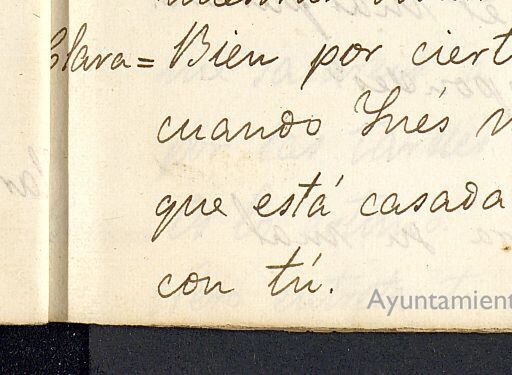 Clara = Bien por ciert
cuando Inés
que está casada
con tú.
Ayuntamient